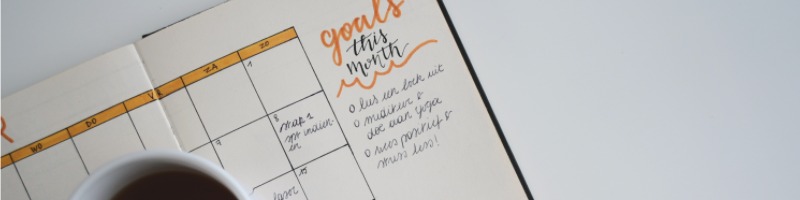 goals
this
month
o lees een boek uit
o mediteer &
doe aan yoga
o wees positief &
stress less!
WO
DO
VR
ZA
ZO
1
8
stap 1
9
15